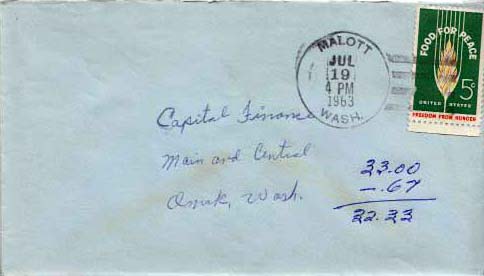 MALOTT
JUL
19
4 PM
1963
WASH.
FOOD FOR PEACE
5¢
UNITED STATES
FREEDOM FROM HUNGER
Capital Finance
Main and Central
Omak, Wash.
33.00
-.67
32.33